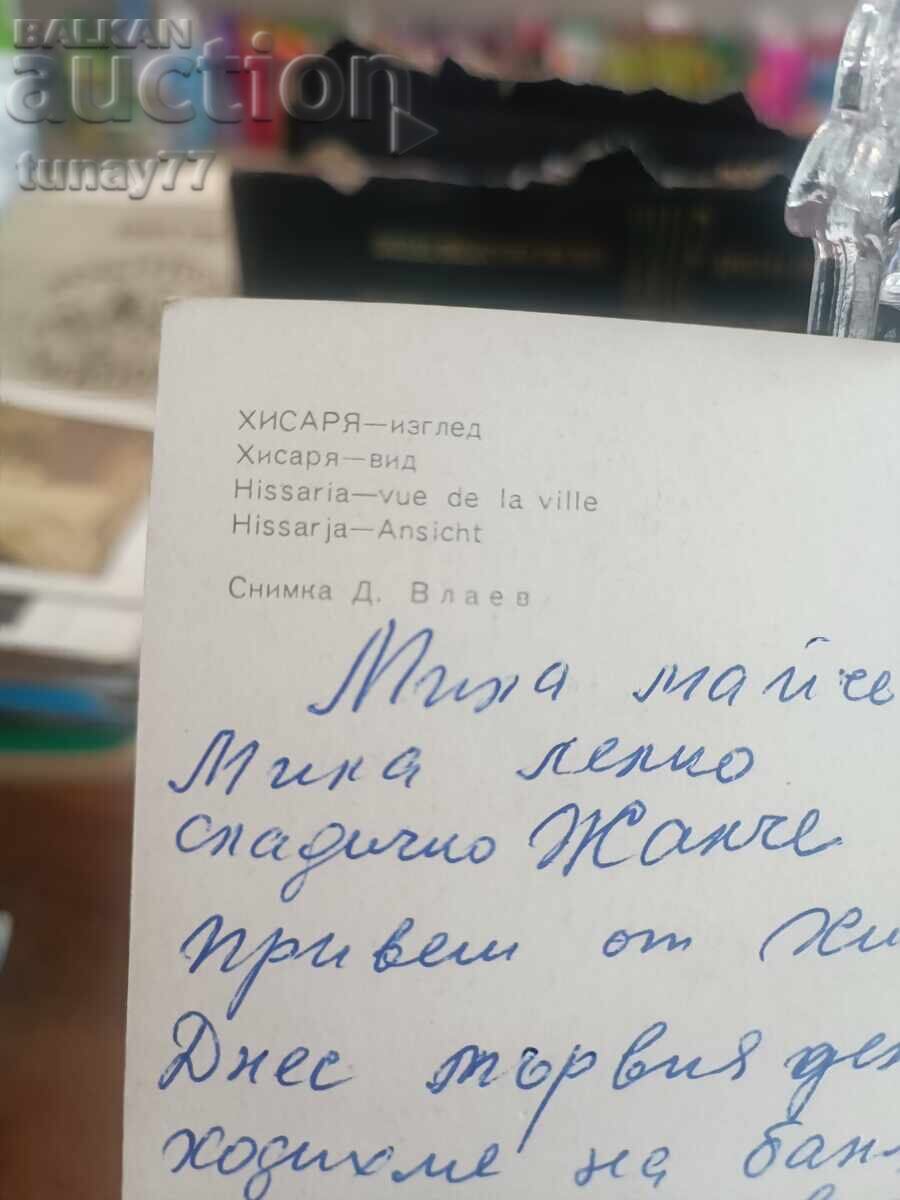 BALKAN
auction
tunay77
ХИСАРЯ—изглед
Хисаря—вид
Hissaria—vue de la ville
Hissarja—Ansicht
Снимка Д. Влаев
Мила майче
Мила лелко
сладичко Жанче
привет от Хи
Днес първия ден
ходихме на бан